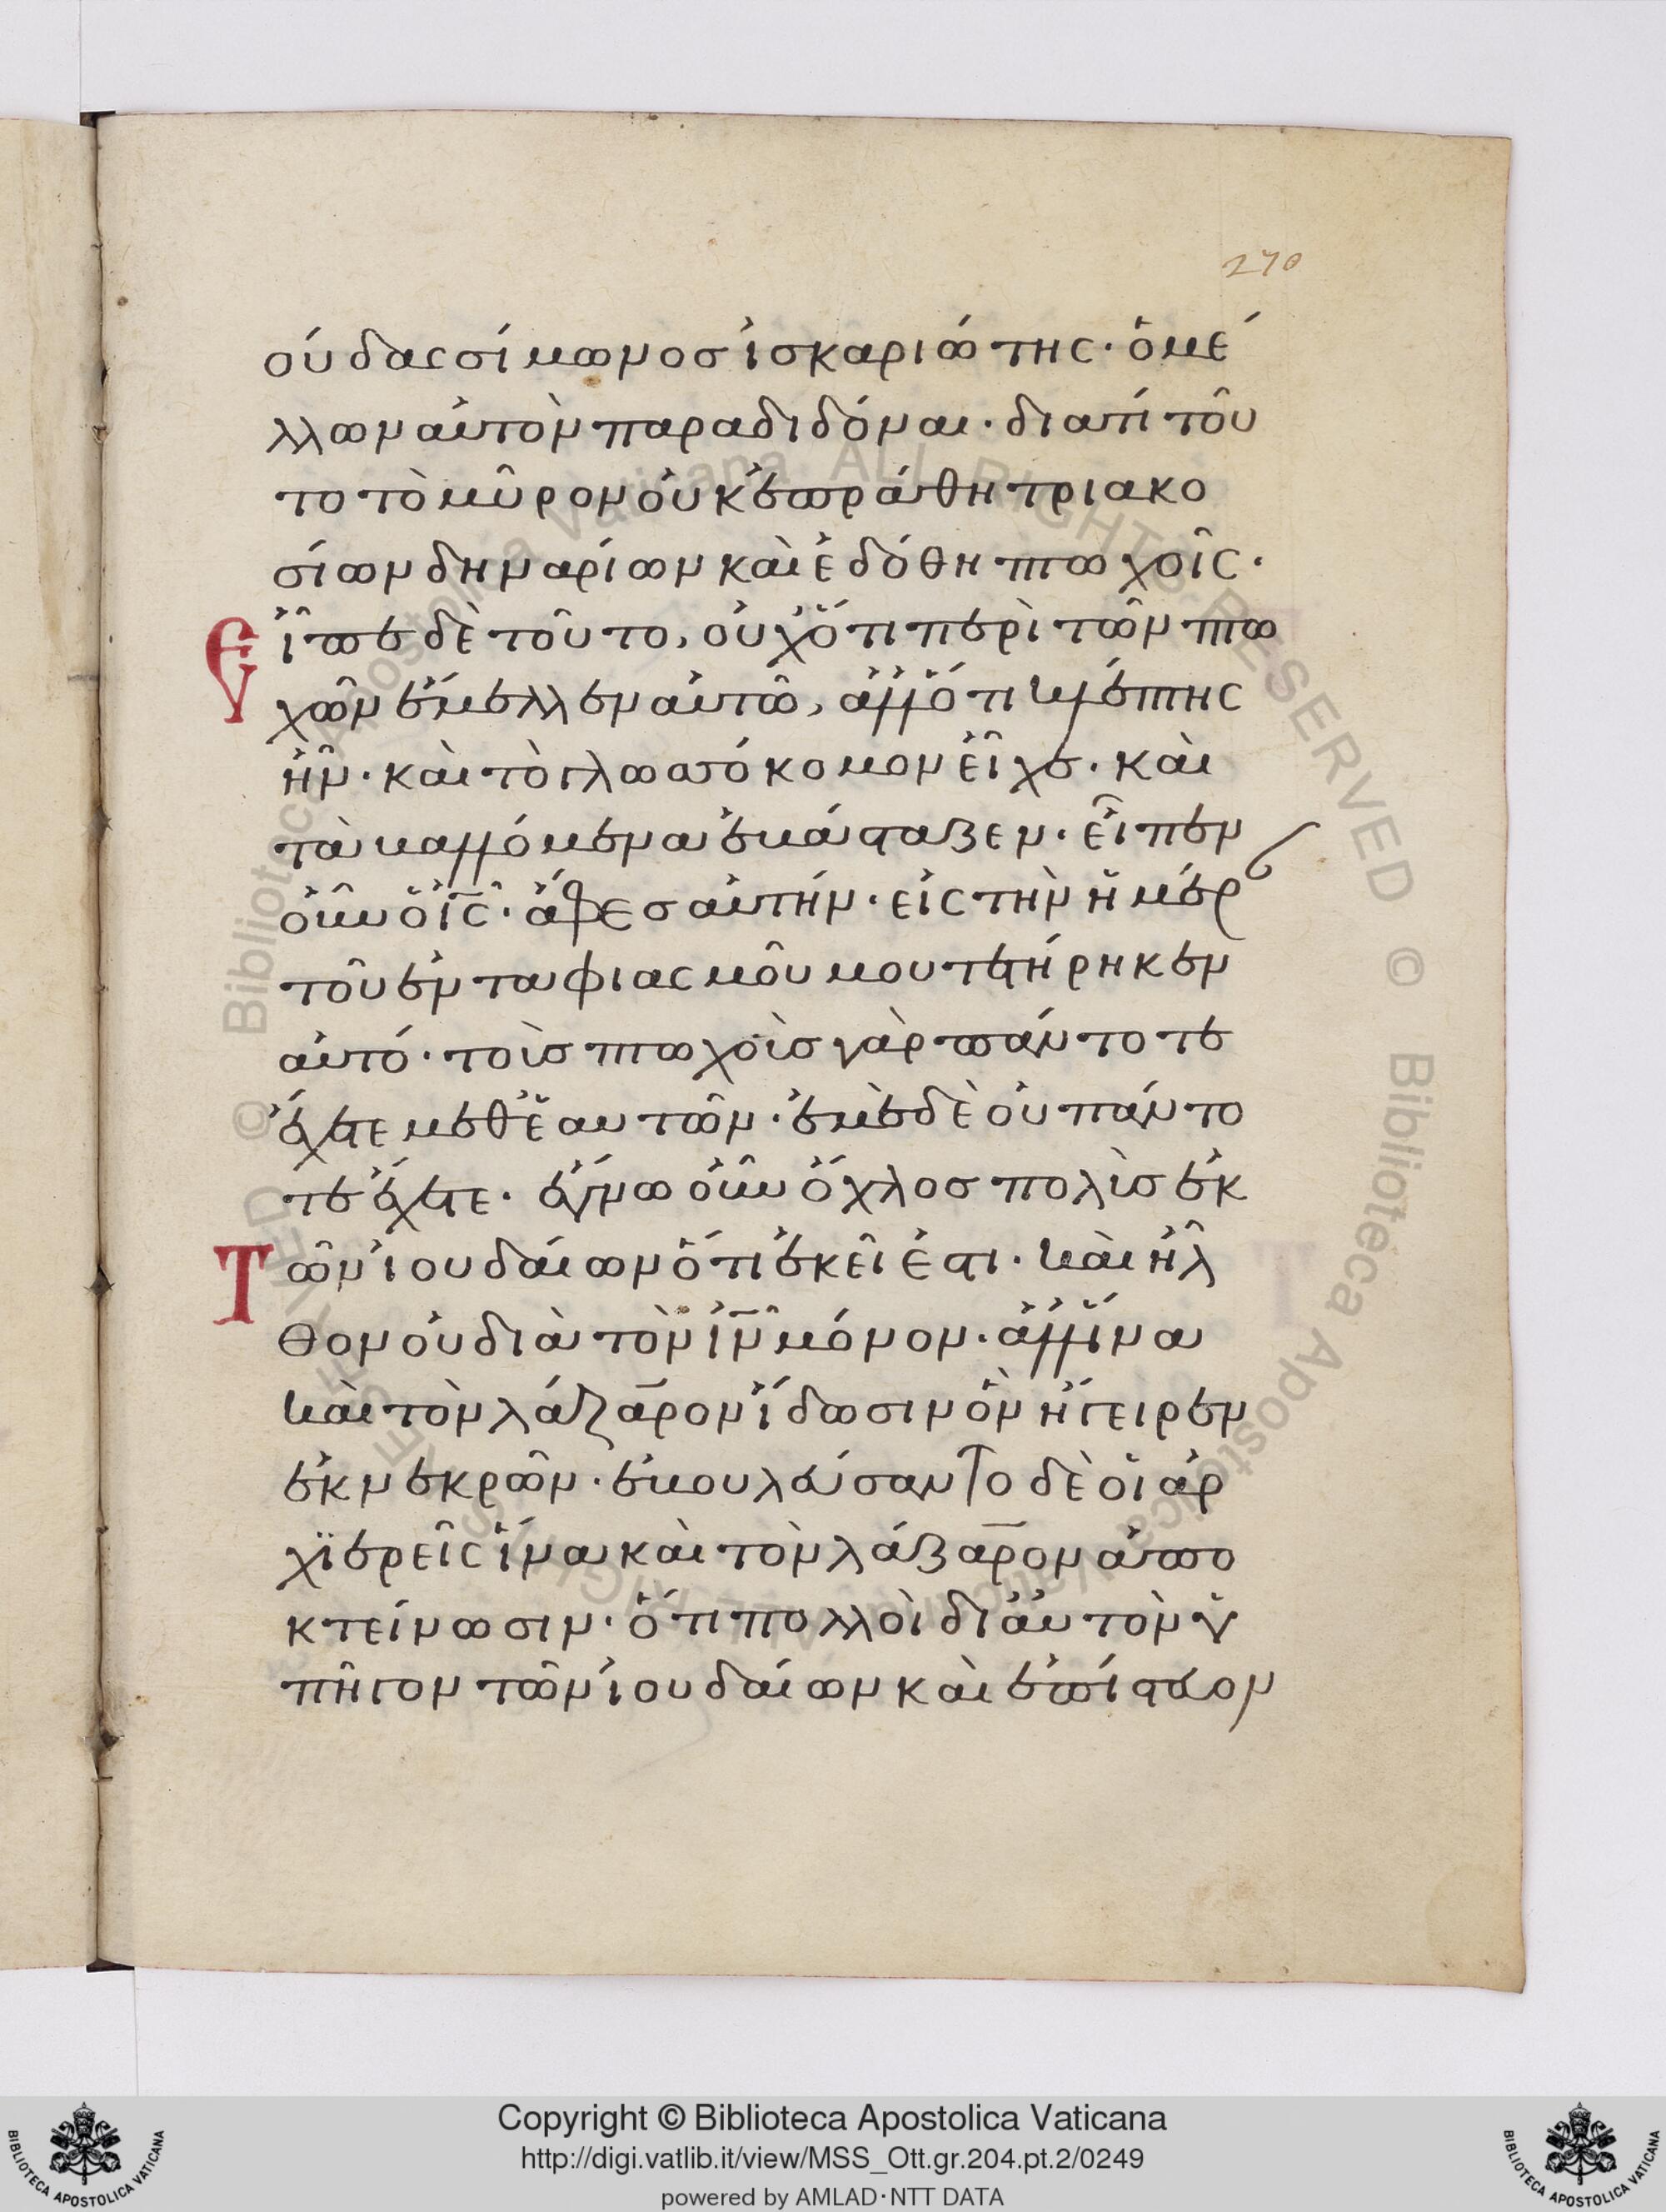 270
ούδας σίμωνος ἰσκαριώτης· ὁ μέ
λλων αὐτὸν παραδιδόναι· διατί τοῦ
το τὸ μῦρον οὐκ ἐπράθη τριακο
σίων δηναρίων καὶ ἐδόθη πτωχοῖς·
Εἶπε δὲ τοῦτο, οὐχ ὅτι περὶ τῶν πτω
χῶν ἔμελλεν αὐτῶ, ἀλλ' ὅτι κλέπτης
ἦν· καὶ τὸ γλωσσόκομον εἶχε· καὶ
τὰ βαλλόμενα ἐβάσταζεν· εἶπεν
οὖν ὁ ἰς· ἄφες αὐτήν· εἰς τὴν ἡμέρ
τοῦ ἐνταφιασμοῦ μου τετήρηκεν
αὐτό· τοὺς πτωχοὺς γὰρ πάντοτε
ἔχετε μεθ' ἑαυτῶν· ἐμὲ δὲ οὐ πάντο
τε ἔχετε· ἔγνω οὖν ὄχλος πολὺς ἐκ
Τῶν ἰουδαίων ὅτι ἐκεῖ ἐστι· καὶ ἦλ
θον οὐ διὰ τὸν ἰν μόνον· ἀλλ' ἵνα
καὶ τὸν λάζαρον ἴδωσιν ὃν ἤγειρεν
ἐκ νεκρῶν· ἐβουλεύσαντο δὲ οἱ ἀρ
χϊερεῖς ἵνα καὶ τὸν λάζαρον ἀπο
κτείνωσιν· ὅτι πολλοὶ δι' αὐτὸν ὑ
πῆγον τῶν ἰουδαίων καὶ ἐπίστευον
Copyright © Biblioteca Apostolica Vaticana
http://digi.vatlib.it/view/MSS_Ott.gr.204.pt.2/0249
powered by AMLAD·NTT DATA
BIBLIOTECA APOSTOLICA VATICANA
BIBLIOTECA APOSTOLICA VATICANA